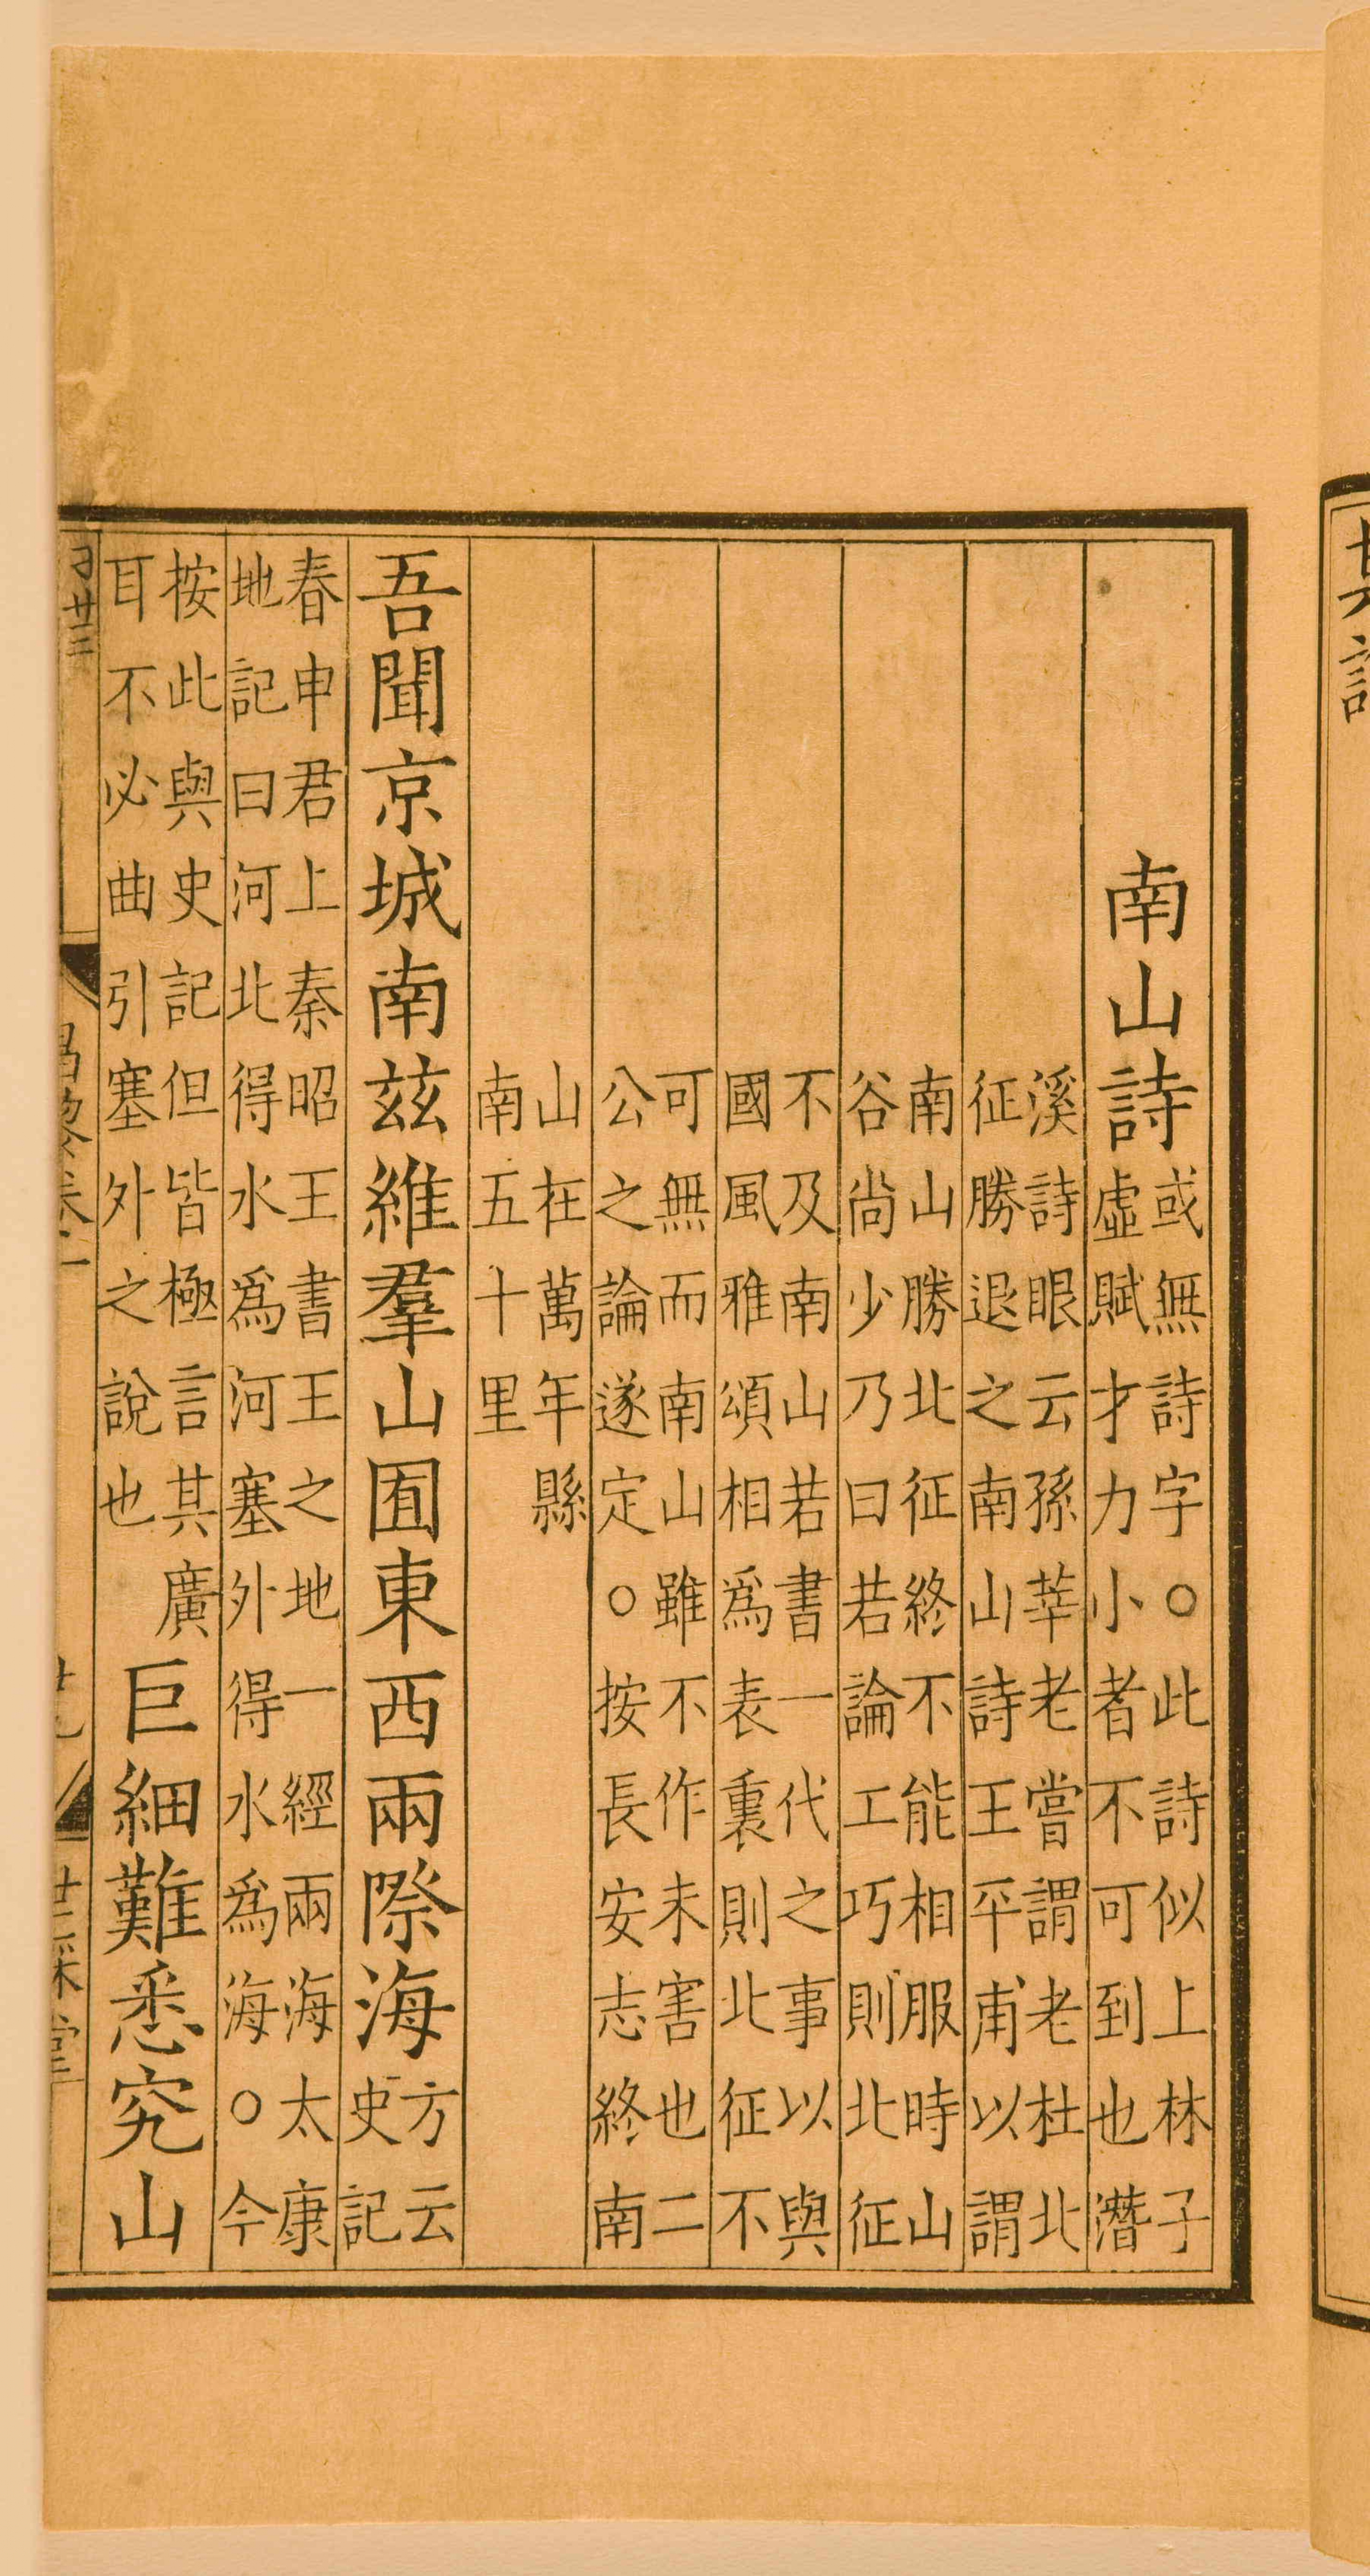 南山詩
或無詩字○此詩似上林子
虛賦才力小者不可到也潛
溪詩眼云孫莘老嘗謂老杜北
征勝退之南山詩王平甫以謂
南山勝北征終不能相服時山
谷尚少乃曰若論工巧則北征
不及南山若書一代之事以與
國風雅頌相爲表裏則北征不
可無而南山雖不作未害也二
公之論遂定○按長安志終南
山在萬年縣
南五十里
吾聞京城南兹維羣山囿東西兩際海
方云
史記
春申君上秦昭王書王之地一經兩海太康
地記曰河北得水爲河塞外得水爲海○今
按此與史記但皆極言其廣
耳不必曲引塞外之說也
巨細難悉究山
昌黎卷一
世綵堂